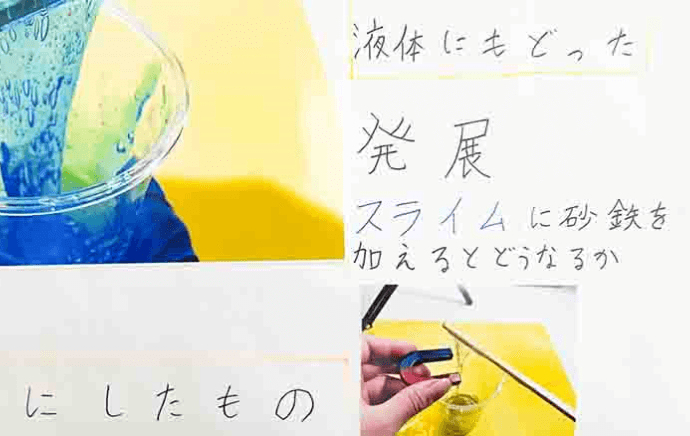 液体にもどった
発展
スライムに砂鉄を
加えるとどうなるか
にしたもの